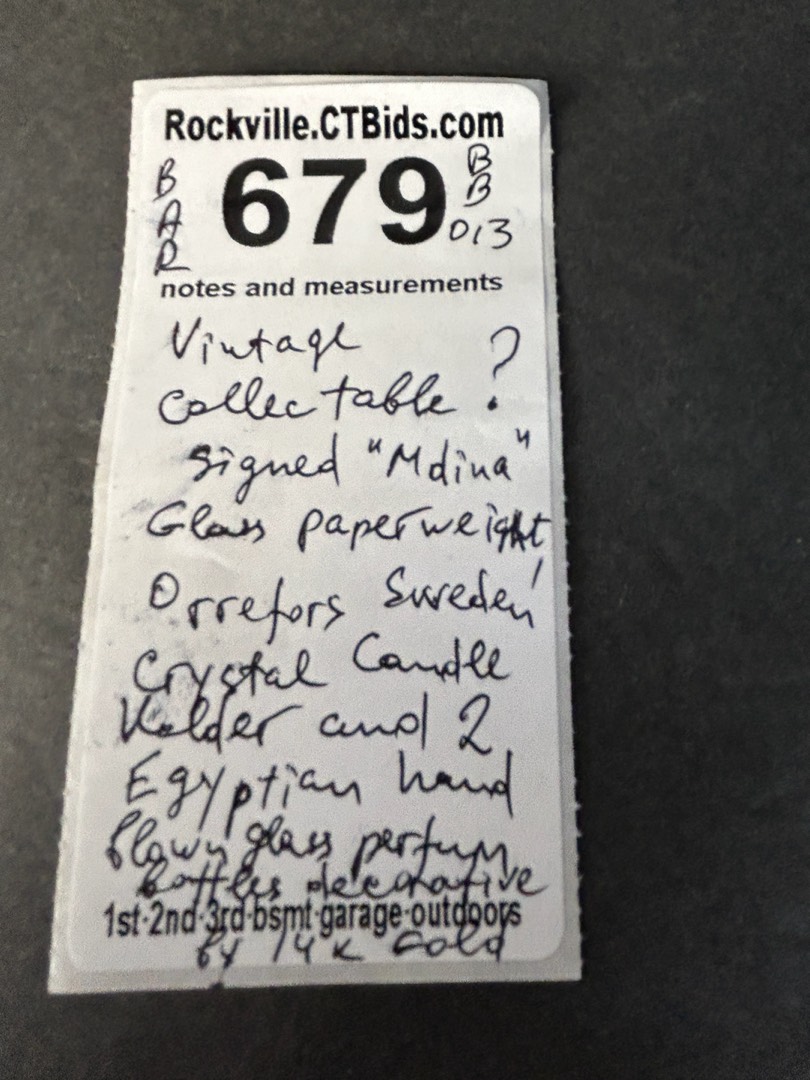 Rockville.CTBids.com
BAR 679 BB 013
notes and measurements
Vintage ?
Collectable
signed "Mdina"
Glass paperweight,
Orrefors Sweden
Crystal Candle
Holder and 2
Egyptian hand
blown glass perfum
bottles decorative
1st·2nd·3rd·bsmt·garage·outdoors
by 14 K Gold